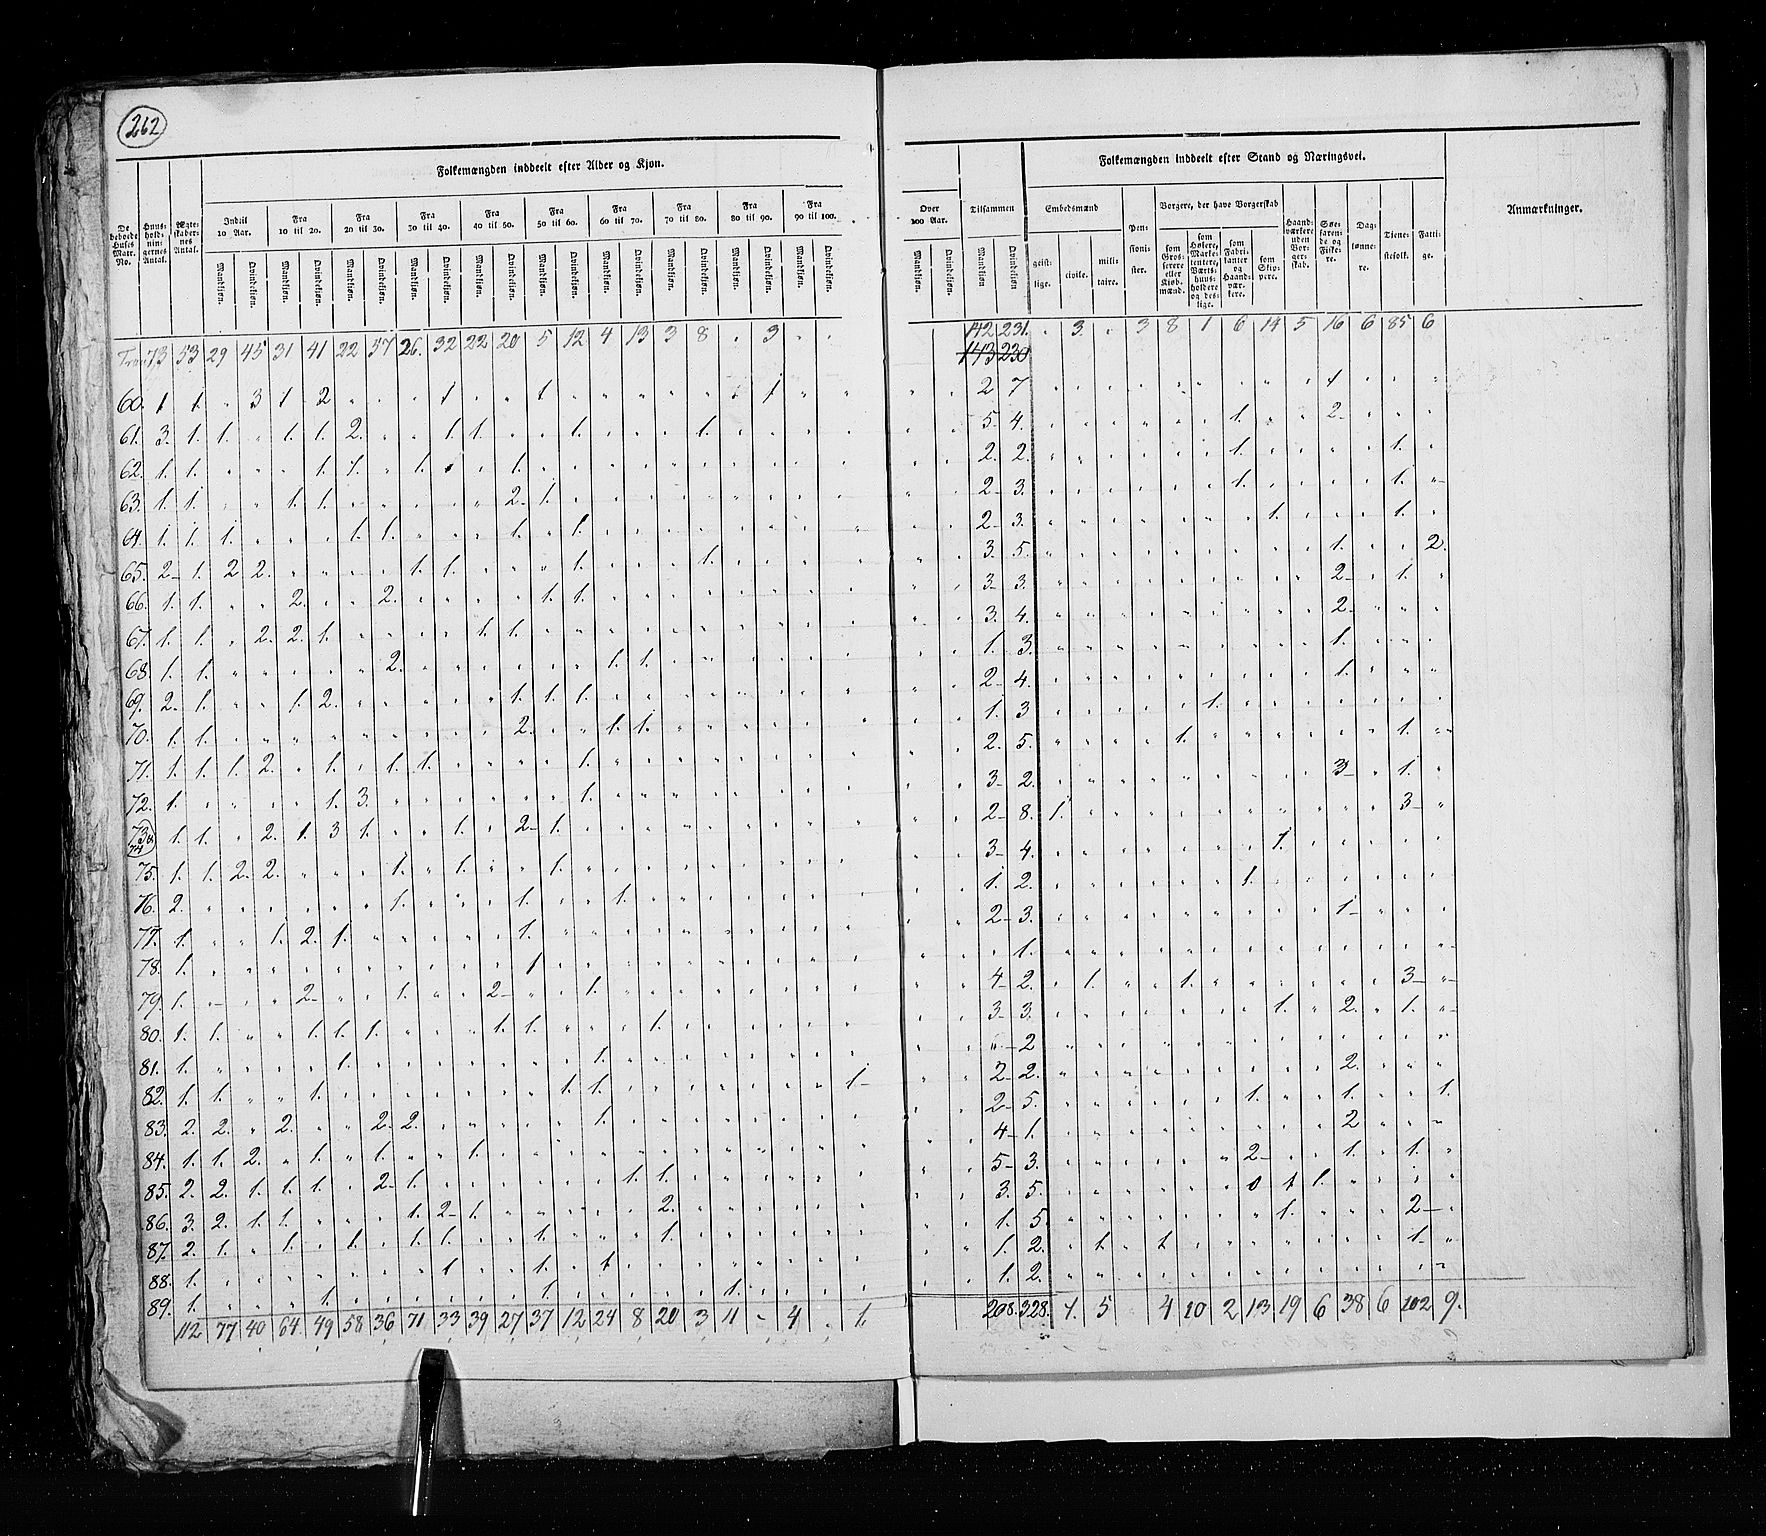 262
Folkemængden inddeelt efter Alder og Kjøn.
De beboede Huses Matr. No.
Huusholdningernes Antal.
Ægteskabernes Antal.
Indtil 10 Aar.
Fra 10 til 20.
Fra 20 til 30.
Fra 30 til 40.
Fra 40 til 50.
Fra 50 til 60.
Fra 60 til 70.
Fra 70 til 80.
Fra 80 til 90.
Fra 90 til 100.
Mandkjøn. Qvindekjøn. Mandkjøn. Qvindekjøn. Mandkjøn. Qvindekjøn. Mandkjøn. Qvindekjøn. Mandkjøn. Qvindekjøn. Mandkjøn. Qvindekjøn. Mandkjøn. Qvindekjøn. Mandkjøn. Qvindekjøn. Mandkjøn. Qvindekjøn. Mandkjøn. Qvindekjøn.
73 53 29 45 31 41 22 57 26. 32 22 20 5 12 4 13 3 8 . 3 . .
60. 1 1. " 3 1 2 " . . 1 . . 1
61. 3. 1. 1. " 1. 1. 2. " . 1. 1. . . 1. . . . 1.
62. 1. 1. . . . 1. 1. " 1. . . 1.
63. 1. 1. " " 1. 1. . . . . . 2. 1.
64. 1. 1. 1. . . . 1. 1. . . . 1. . 1.
65. 2 1. 2 2. . . . . 1. 1. . . . 1. . . . 1.
66. 1. 1. . . 2. . . 2. . . . . 1. 1.
67. 1. 1. . 2. 2. 1. . . . . 1. 1.
68. 1. 1. . . . . . 2. . . . . . . 1. 1.
69. 2. 1. . . 1. 2. . . . . . 1. 1. 1.
70. 1. 1. . . . . . . . . . 2. . . 1. 1.
71. 1. 1. 1. 2. . 1. . 1. 1. . . . . 1.
72. 1. . . . . 1. 3. . . . . . . 1.
73 & 74 1. 1. . 2. 1. 3 1. . . 1. . 2 1.
75. 1. 1. 2. 2. . . . 1. . 1. . . 1.
76. 2. . . . . . . 1. . . . 1. . . 1.
77. 1. . . 1. 2. 1. . . . . . 1.
78. 1. . . . . . . . . . . 1
79. 1. . . . 2 . . 1. . . 2 . . 1.
80. 1. 1. . . 1. 1. 1. . . . 1. 1. . . . 1.
81. 1. . . . . 1. . . . . . . . 1.
82. 1. 1. . . 1. . . . . . . . 1. 1. . . . . . . . 1
83. 2. 2. . 2. . . 2. 2. . . . . . 1.
84. 1. 1. 2. . 1. . 1. . . 1.
85. 2. 2. 1. 1. 1. . 2 1. . . . . . . 1. 1.
86. 3. 2. 1. 1. . . . 1. 2 1. . . . . . 2.
87. 2. 1. . 1. . 1. . 1. 1. . . 1. . . . 1.
88. 1. . . . . . . . 1 . . 1. . 1
89. 1. . . . 1. . . . . . . 1. . . . . . 1.
112 77 40 64 49 58 36 71 33 39 27 37 12 24 8 20 3 11 - 4 . 1
Over 100 Aar.
Mandkjøn. Qvindekjøn.
Tilsammen
Mandkjøn. Qvindekjøn.
Folkemængden inddeelt efter Stand og Næringsvei.
Embedsmænd
geistlige. civile. militaire.
Pensionister.
Borgere, der have Borgerskab
som Grosserere eller Kjøbmænd.
som Høkere, Marketentere, Værtshuusholdere og deslige.
som Fabrikanter og Haandværkere.
som Skippere.
Haandværkere uden Borgerskab.
Søefarende og Fiskere.
Daglønnere.
Tjenestefolk.
Fattige.
Anmærkninger.
142 231. . 3. . 3 8 1 6 14 5 16 6 85 6
143 230
2 7 1
5 4. 1. 2
2. 2. 1. 1.
2 3. 1. 1.
2 3. 1. 1.
3. 5. 1. 2.
3 3. 2 1.
3. 4. 2
1. 3. 1.
2 4. 1.
1. 3 1.
2. 5. 1. 1.
3 2. 3 1.
2 8. 1. 3
3 4. 1.
1. 2. 1.
2 3. 1
. 1.
4 2. 1. 1. 3
3 3. 1. 2. 1.
" 2
2 2. 2.
2 5. 1. 1. 1.
4 1. 2
5 3. 2 1. 1.
3. 5. 0 1 1.
1. 5. 1. 2
1. 2. 1. 1. 1.
1. 2.
208. 328. 1. 5 4 10 2 13 19 6 38 6 102 9.